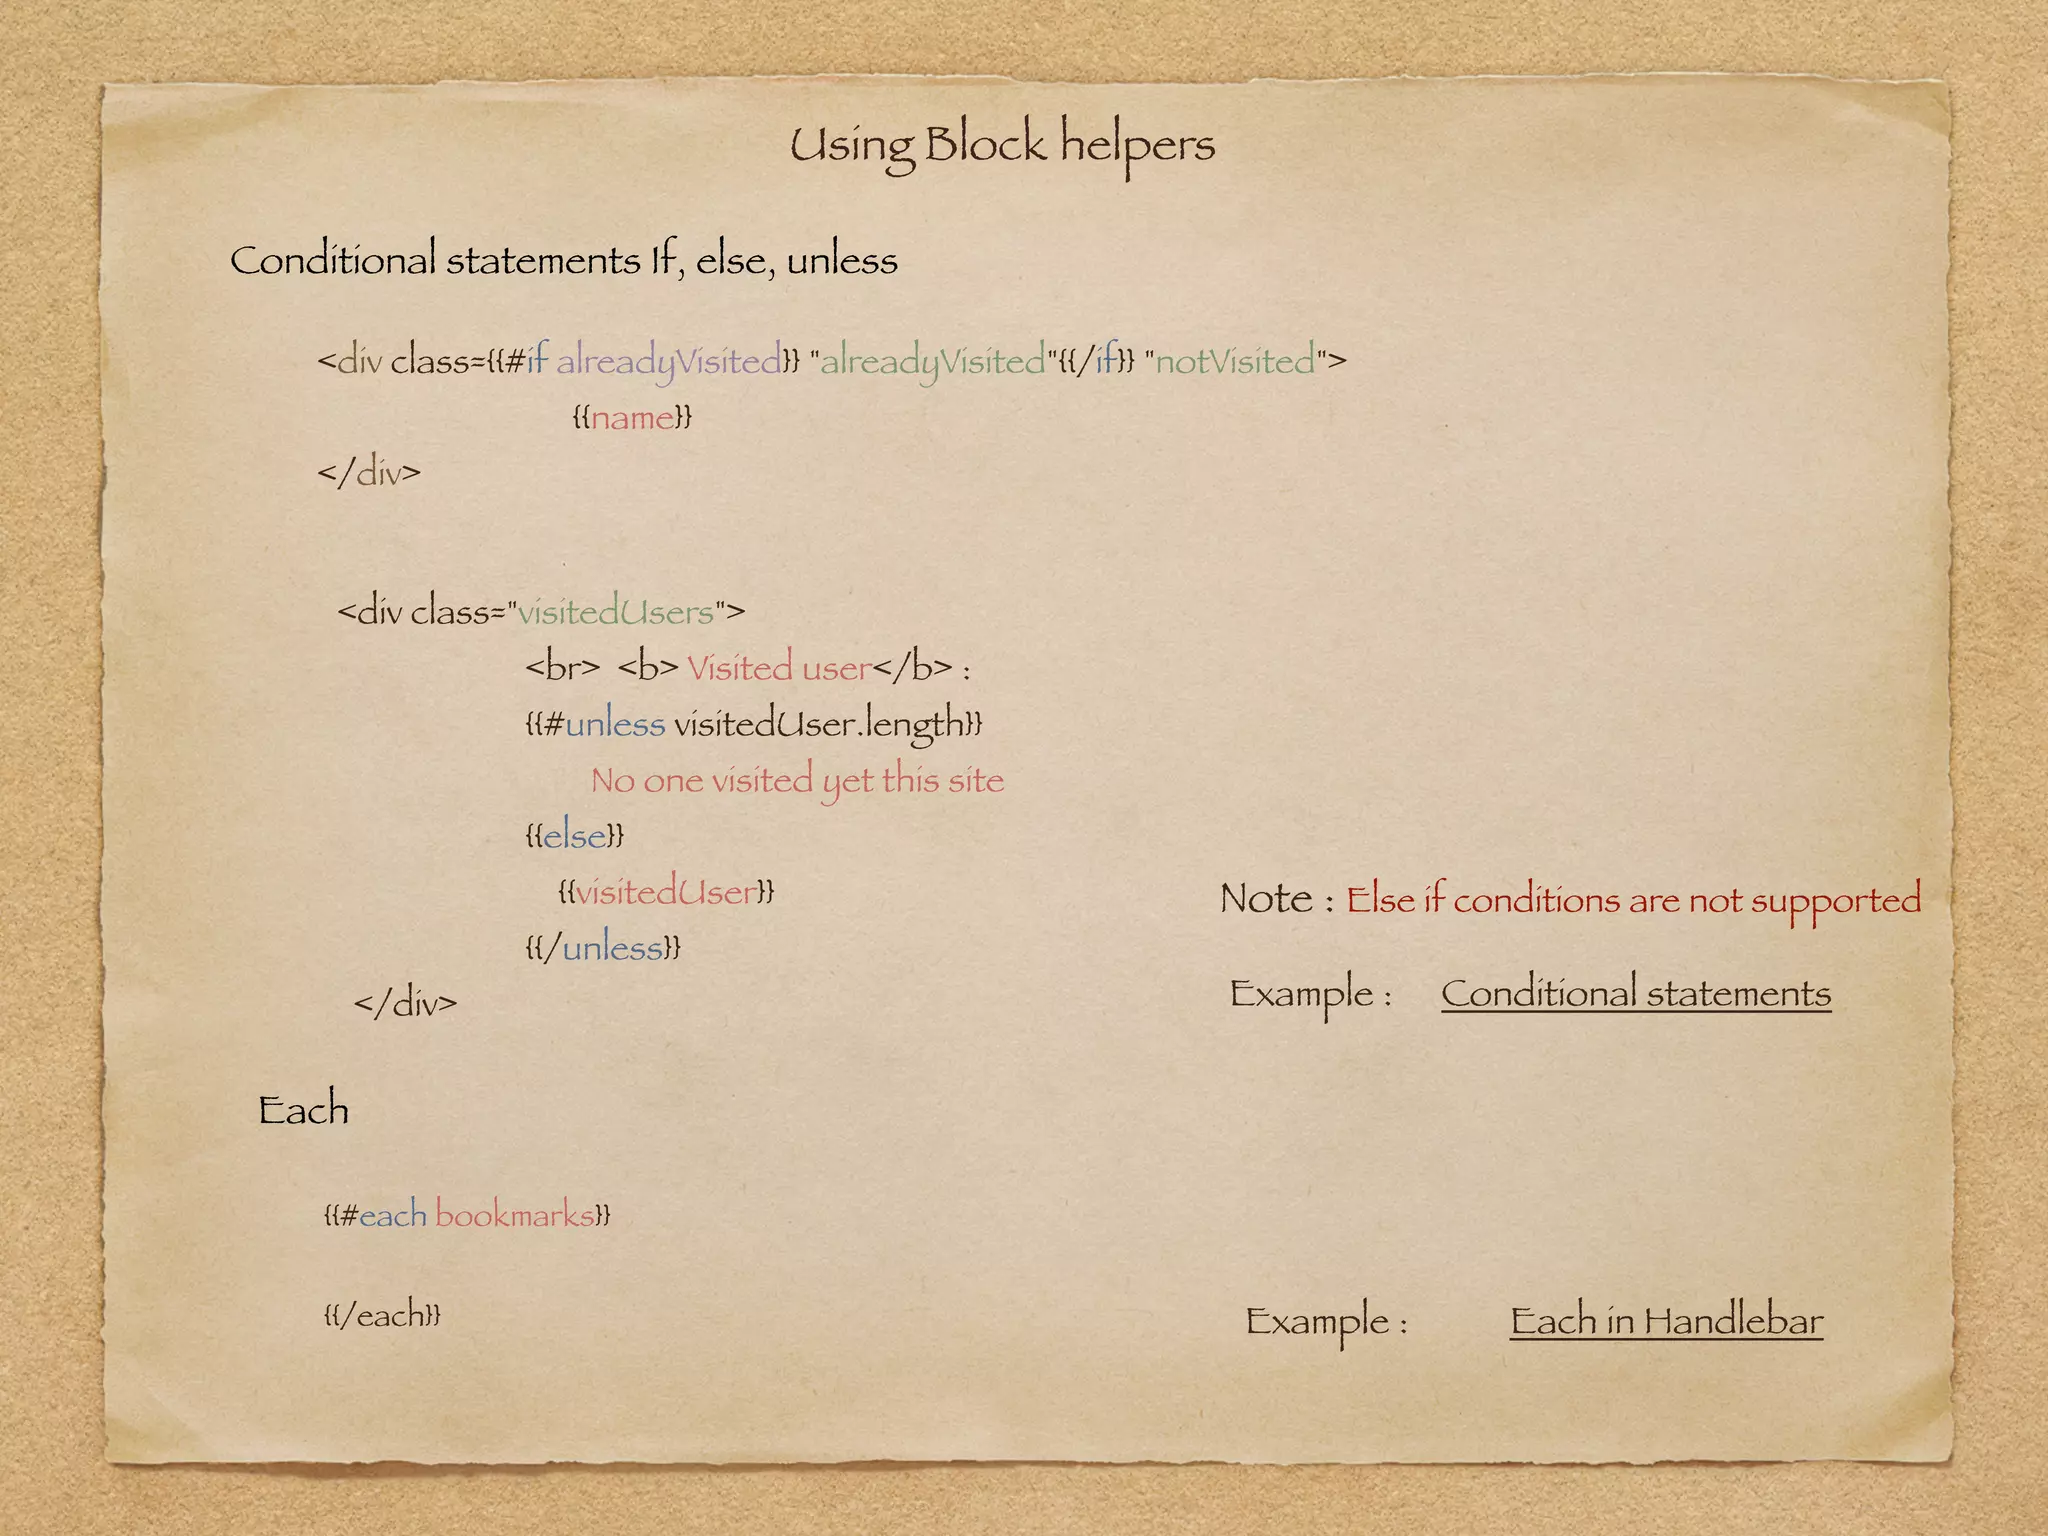 Using Block helpers
Conditional statements If, else, unless
<div class={{#if alreadyVisited}} "alreadyVisited"{{/if}} "notVisited">
{{name}}
</div>
<div class="visitedUsers">
<br> <b> Visited user</b> :
{{#unless visitedUser.length}}
No one visited yet this site
{{else}}
{{visitedUser}}
{{/unless}}
</div>
Note : Else if conditions are not supported
Example : Conditional statements
Each
{{#each bookmarks}}
{{/each}}
Example : Each in Handlebar